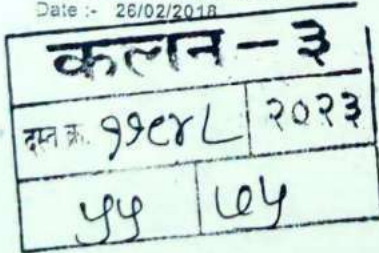 Date :- 26/02/2018
कलन - ३
दस्त क्र. ११९४८ २०२३
५५ ७५